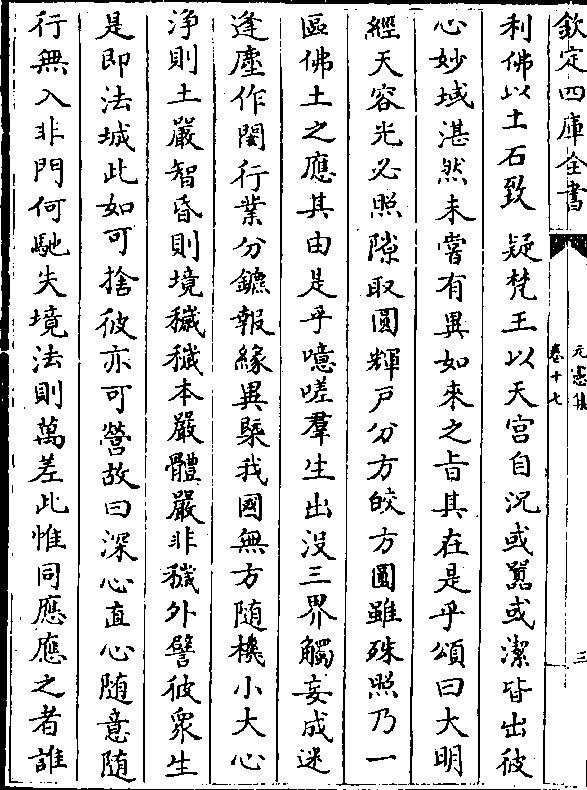 欽定四庫全書
元憲集
卷十七
三
利佛以土石致疑梵王以天宮自況或嚚或潔皆出彼
心妙域湛然未嘗有異如來之旨其在是乎頌曰大明
經天容光必照隙取圓輝戸分方皎方圓雖殊照乃一
區佛土之應其由是乎噫嗟羣生出没三界觸妄成迷
逢塵作閡行業分鑣報緣異槩我國無方隨機小大心
淨則土嚴智昏則境穢穢本嚴體嚴非穢外譬彼衆生
是即法城此如可捨彼亦可營故曰深心直心随意随
行無入非門何馳失境法則萬差此惟同應應之者誰